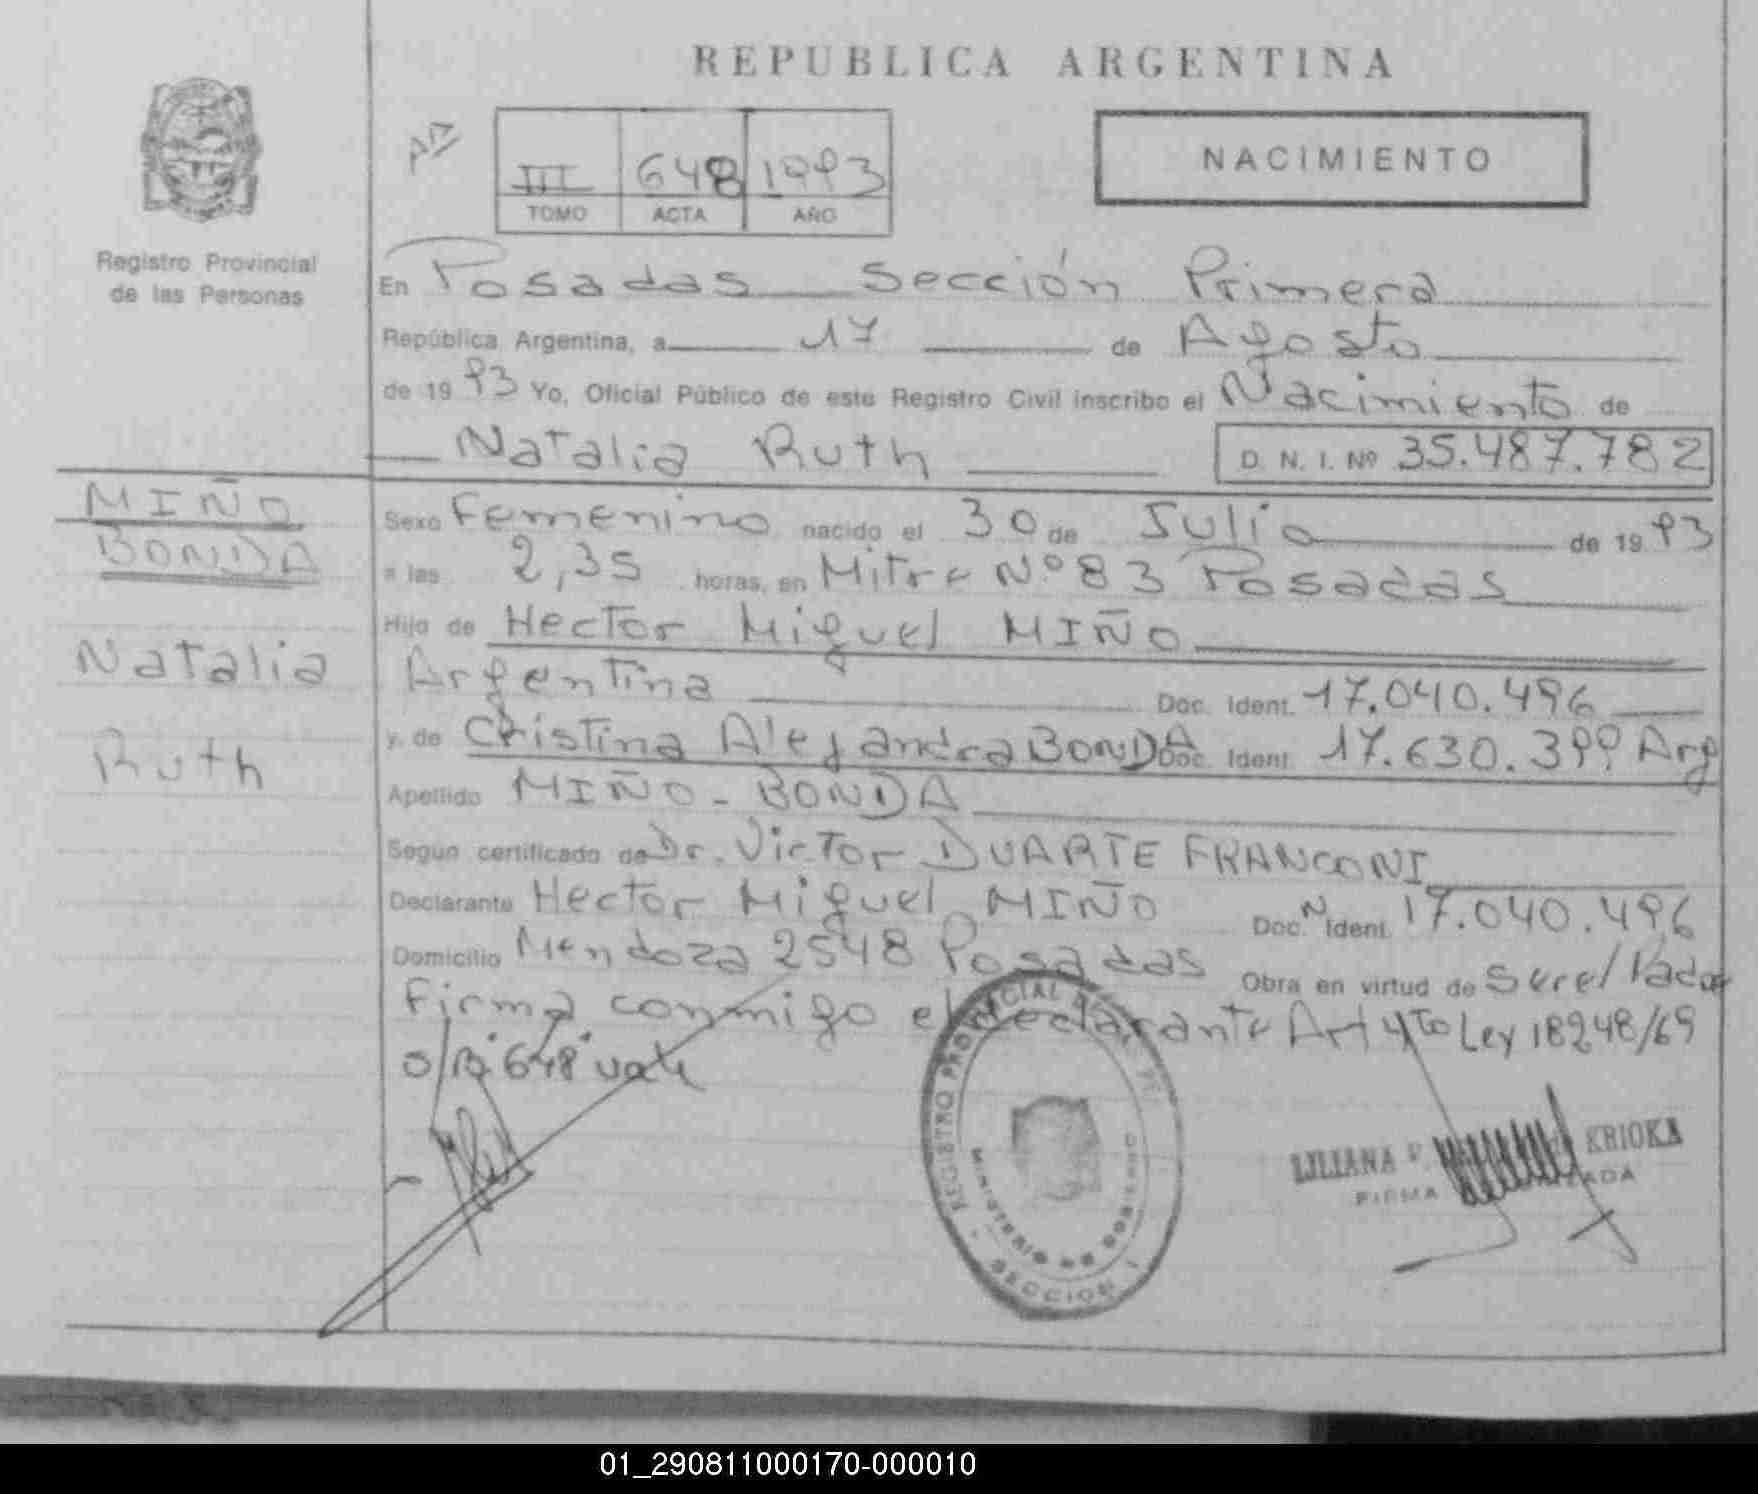 REPUBLICA ARGENTINA
NACIMIENTO
III 648 1993
TOMO ACTA AÑO
Registro Provincial
de las Personas
En Posadas Sección Primera
República Argentina, a 17 de Agosto
de 1993 Yo, Oficial Público de este Registro Civil inscribo el Nacimiento de
Natalia Ruth D. N. I. Nº 35.487.782
MIÑO
BONDA
Natalia
Ruth
Sexo Femenino nacido el 30 de Julio de 1993
a las 2,35 horas, en Mitre Nº 83 Posadas
Hijo de Hector Miguel MIÑO
Argentina Doc. Ident. 17.040.496
y de Cristina Alejandra BONDA Doc. Ident. 17.630.399 Arg
Apellido MIÑO - BONDA
Según certificado de Dr. Victor DUARTE FRANCONI
Declarante Hector Miguel MIÑO Doc. N Ident. 17.040.496
Domicilio Mendoza 2548 Posadas Obra en virtud de Ser el Padre
Firma conmigo el declarante Art 4to Ley 18248/69
"648" vale
REGISTRO PROVINCIAL DE
MINISTERIO DE GOBIERNO
SECCION I
LILIANA KRIOKA
FIRMA
01_290811000170-000010